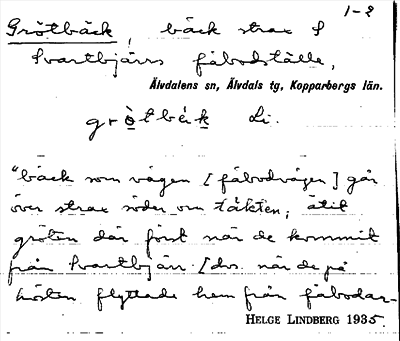 1-2
Grötbäck, bäck strax S
Svartbjärs fäbodställe,
Älvdalens sn, Älvdals tg, Kopparbergs län.
grò̱tbèḵ Li.
"bäck som vägen [fäbodvägen] går
över strax söder om täkten; ätit
gröten där först när de kommit
från Svartbjär. [dvs. när de på
hösten flyttade hem från fäbodar-
HELGE LINDBERG 1935.